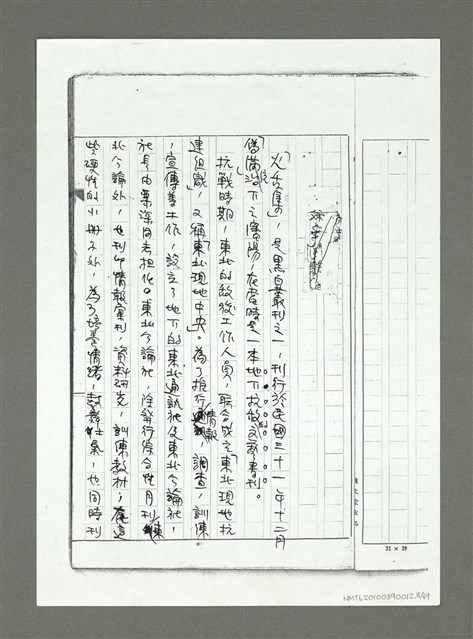 「火炬集」，是黑白叢刊之一，刊行於民國三十一年十二月
偽滿治下之瀋陽，在當時是一本地下抗敵文藝書刊。
抗戰時期，東北的敵後工作人員，聯合成立東北現地抗
連組織，又稱「東北現地中央」。為了推行情報，調查，訓練
，宣傳等工作，設立了地下的東北通訊社及東北公論社，
社長由栗深同志担任。東北公論社，除發行綜合性月刊「東
北公論」外，也刊印情報彙刊，資料研究，訓練教材，在這
些硬性的小冊子外，為了培養情緒，鼓舞士氣，也同時刊
25 × 20
NMTL20100390012.8/69